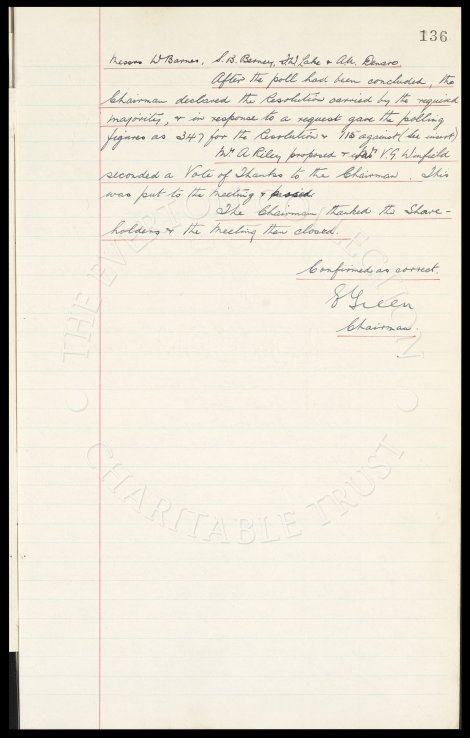 136
Messrs W Barnes, S. B. Berney, Lake & Ah. Denaro.
After the poll had been concluded, the
Chairman declared the Resolution carried by the required
majority, & in response to a request gave the polling
figures as 347 for the Resolution & 115 against (see insert)
Mr A Riley proposed & Mr V. G Winfield
seconded a Vote of Thanks to the Chairman. This
was put to the meeting & passed.
The Chairman thanked the Share-
holders & the Meeting then closed.
Confirmed as correct.
E Green
Chairman.
THE EVERTON COLLECTION
CHARITABLE TRUST